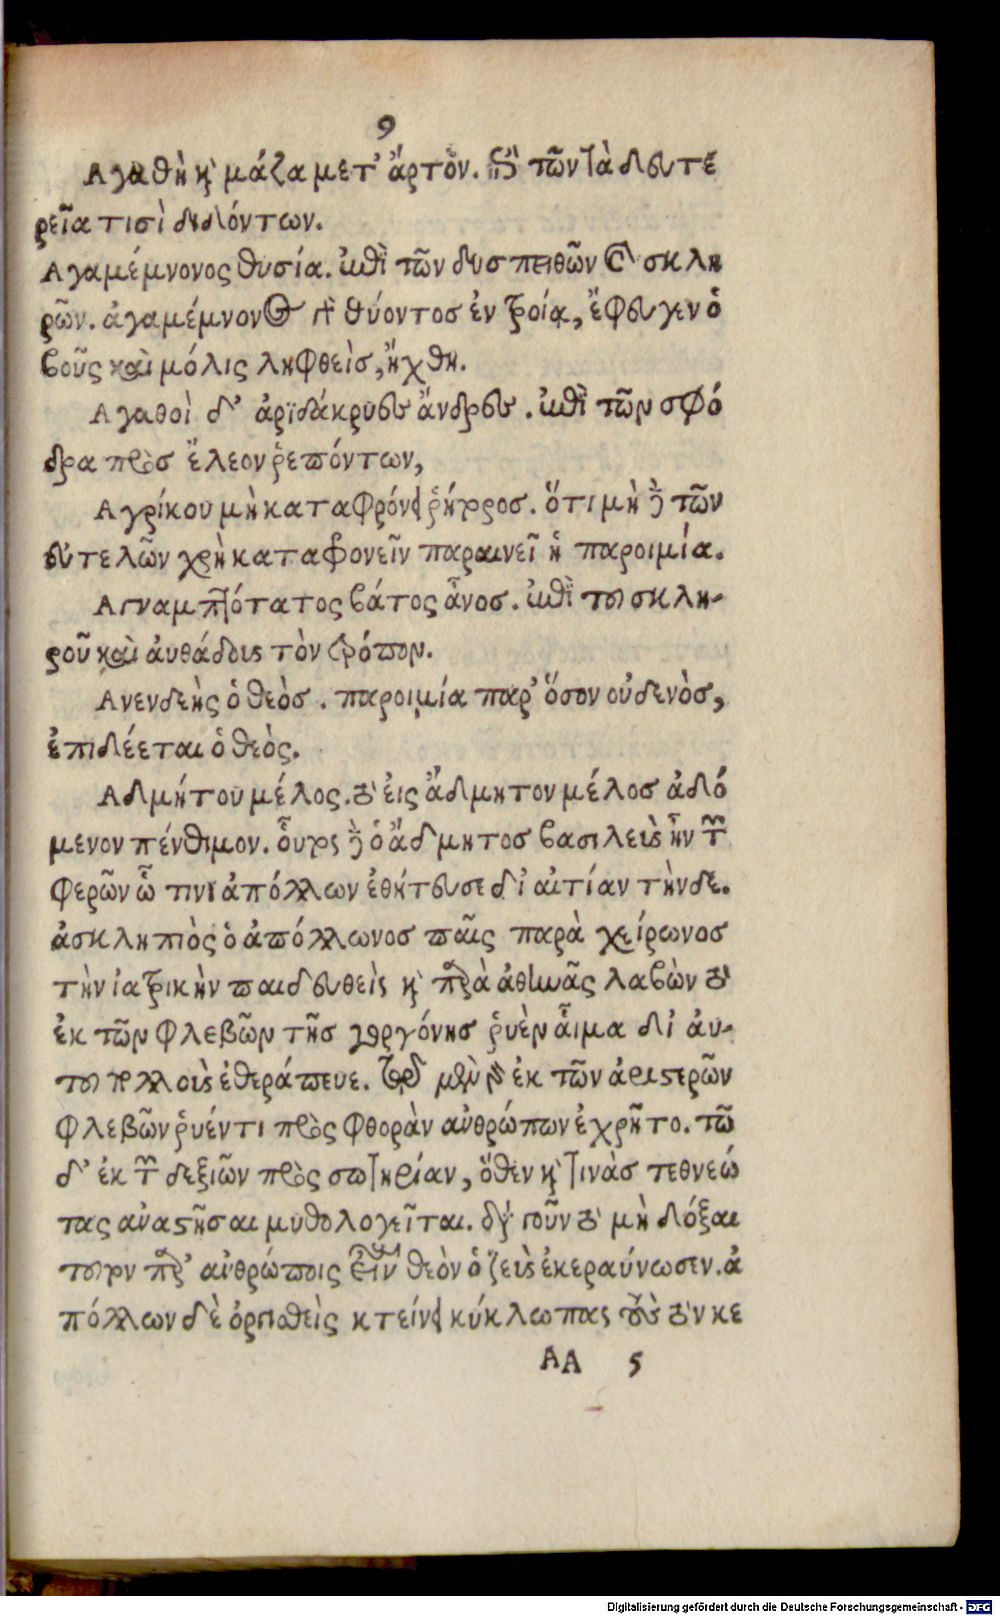 9
Αγαθὴ καὶ μάζα μετ' ἄρτον. ἐπὶ τῶν τὰ δευτε
ρεῖα τισὶ διδόντων.
Αγαμέμνονος θυσία. ἐπὶ τῶν δυσπειθῶν καὶ σκλη
ρῶν. ἀγαμέμνονος γὰρ θύοντοσ ἐν τροίᾳ, ἔφευγεν ὁ
βοῦς καὶ μόλις ληφθεὶσ, ἤχθη.
Αγαθοὶ δ' ἀριδάκρυες ἄνδρες. ἐπὶ τῶν σφό
δρα πρὸσ ἔλεον ῥεπόντων,
Αγρίκου μὴ καταφρόνει ῥήτοροσ. ὅτι μὴ δὲ τῶν
εὐτελῶν χρὴ καταφρονεῖν παραινεῖ ἡ παροιμία.
Αγναμπτότατος βάτος αὖνοσ. ἐπὶ τοῦ σκλη-
ροῦ καὶ αὐθάδους τὸν τρόπον.
Ανενδεὴς ὁ θεὸσ. παροιμία παρ' ὅσον οὐδενὸσ,
ἐπιδέεται ὁ θεὸς.
Αδμήτου μέλος. εἰς ἄδμητον μέλοσ ἀδό
μενον πένθιμον. οὗτος δὲ ὁ ἄδμητοσ βασιλεὺς ἦν τῶν
φερῶν ὧ τινι ἀπόλλων ἐθήτευσε δἰ αἰτίαν τὴνδε.
ἀσκληπιὸς ὁ ἀπόλλωνοσ παῖς παρὰ χείρωνοσ
τὴν ἰατρικὴν παιδευθεὶς καὶ παρὰ ἀθηνᾶς λαβὼν τὸ
ἐκ τῶν φλεβῶν τῆσ γοργόνησ ῥυὲν αἷμα δἰ αὐ-
τοῦ πολλοὺς ἐθεράπευε. τῷ μὲν γὰρ ἐκ τῶν ἀριστερῶν
φλεβῶν ῥυέντι πρὸς φθορὰν ἀνθρώπων ἐχρῆτο. τῶ
δ' ἐκ τῶν δεξιῶν πρὸς σωτηρίαν, ὅθεν καὶ τινὰσ τεθνεώ
τας ἀναστῆσαι μυθολογεῖται. διὰ γοῦν τὸ μὴ δόξαι
τοῦτον παρ' ἀνθρώποις εἶναι θεὸν ὁ ζεὺς ἐκεραύνωσεν. ἀ
πόλλων δὲ ὀργισθεὶς κτείνει κύκλωπας τοὺς τὸν κε
AA 5
Digitalisierung gefördert durch die Deutsche Forschungsgemeinschaft - DFG